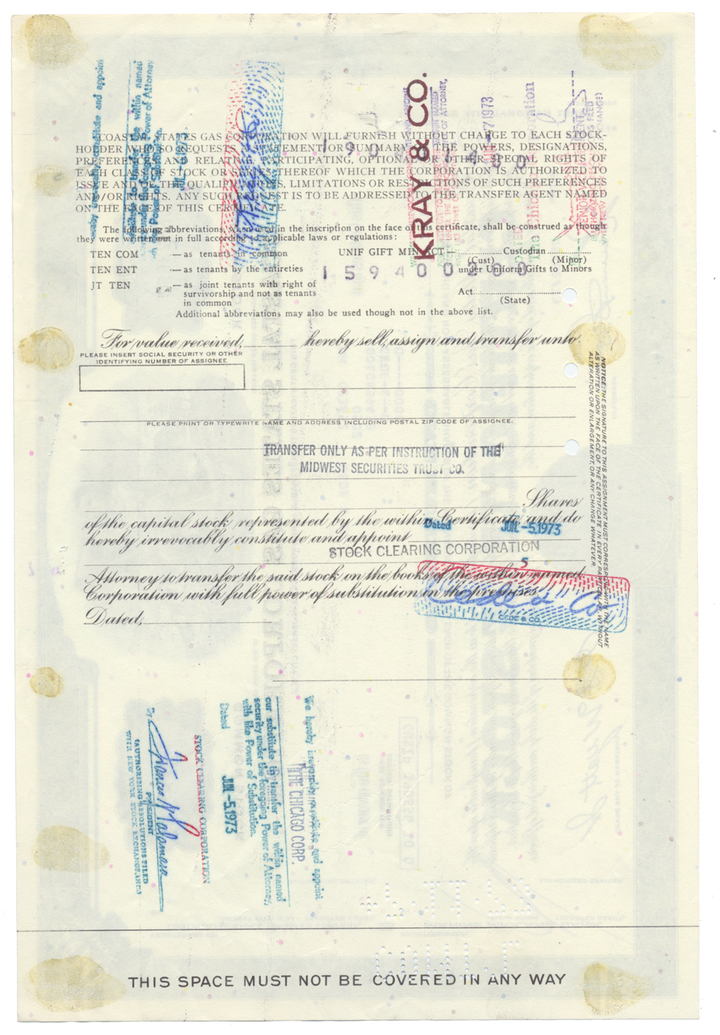 COASTAL STATES GAS CORPORATION WILL FURNISH WITHOUT CHARGE TO EACH STOCK-
HOLDER WHO SO REQUESTS A STATEMENT OR SUMMARY OF THE POWERS, DESIGNATIONS,
PREFERENCES AND RELATIVE PARTICIPATING, OPTIONAL OR OTHER SPECIAL RIGHTS OF
EACH CLASS OF STOCK OR SERIES THEREOF WHICH THE CORPORATION IS AUTHORIZED TO
ISSUE AND OF THE QUALIFICATIONS, LIMITATIONS OR RESTRICTIONS OF SUCH PREFERENCES
AND/OR RIGHTS. ANY SUCH REQUEST IS TO BE ADDRESSED TO THE TRANSFER AGENT NAMED
ON THE FACE OF THIS CERTIFICATE.
KRAY & CO.
The following abbreviations, when used in the inscription on the face of this certificate, shall be construed as though
they were written out in full according to applicable laws or regulations:
TEN COM — as tenants in common
UNIF GIFT MIN ACT — Custodian
(Cust) (Minor)
TEN ENT — as tenants by the entireties
159400200
under Uniform Gifts to Minors
JT TEN — as joint tenants with right of
survivorship and not as tenants
in common
Act
(State)
Additional abbreviations may also be used though not in the above list.
For value received, hereby sell, assign and transfer unto
PLEASE INSERT SOCIAL SECURITY OR OTHER
IDENTIFYING NUMBER OF ASSIGNEE
PLEASE PRINT OR TYPEWRITE NAME AND ADDRESS INCLUDING POSTAL ZIP CODE OF ASSIGNEE.
TRANSFER ONLY AS PER INSTRUCTION OF THE
MIDWEST SECURITIES TRUST CO.
Shares
of the capital stock represented by the within Certificate, and do
Dated JUL -5.1973
hereby irrevocably constitute and appoint
STOCK CLEARING CORPORATION
Attorney to transfer the said stock on the books of the within named
Corporation with full power of substitution in the premises.
CEDE & CO.
Dated,
NOTICE: THE SIGNATURE TO THIS ASSIGNMENT MUST CORRESPOND WITH THE NAME
AS WRITTEN UPON THE FACE OF THE CERTIFICATE IN EVERY PARTICULAR, WITHOUT
ALTERATION OR ENLARGEMENT, OR ANY CHANGE WHATEVER.
We hereby irrevocably constitute and appoint
THE CHICAGO CORP.
our substitute to transfer the within named
security under the foregoing Power of Attorney,
with like Power of Substitution.
Dated JUL -5.1973
STOCK CLEARING CORPORATION
By
PRESIDENT
(AUTHORIZING RESOLUTIONS FILED
WITH NEW YORK STOCK EXCHANGE, INC.)
THIS SPACE MUST NOT BE COVERED IN ANY WAY